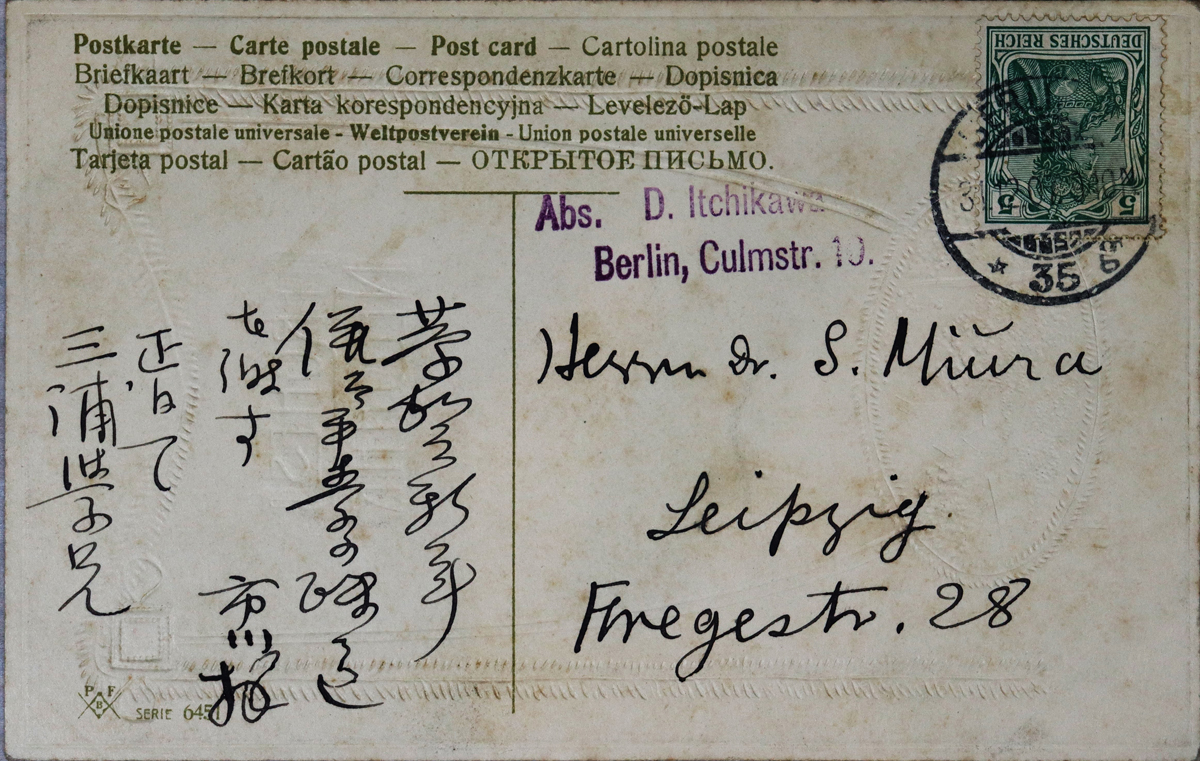 Postkarte — Carte postale — Post card — Cartolina postale
Briefkaart — Brefkort — Correspondenzkarte — Dopisnica
Dopisnice — Karta korespondencyjna — Levelező-Lap
Unione postale universale - Weltpostverein - Union postale universelle
Tarjeta postal — Cartão postal — ОТКРЫТОЕ ПИСЬМО.
DEUTSCHES REICH
5 5
35
Abs. D. Itchikawa
Berlin, Culmstr. 10.
Herrn Dr. S. Miura
Leipzig.
Fregestr. 28
新年
を謝す
市川
三浦学兄
P F B
SERIE 6451